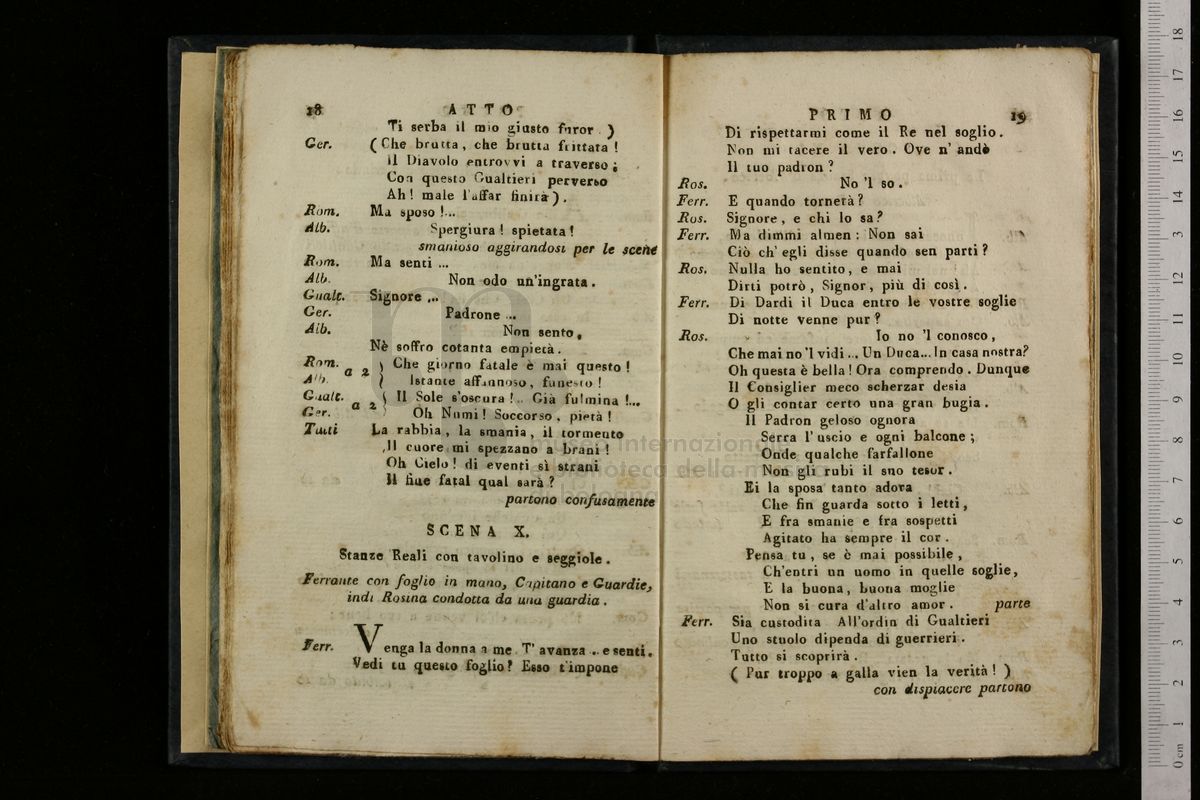 18 ATTO
Ti serba il mio giusto furor. )
Ger. (Che brutta, che brutta frittata!
Il Diavolo entrovvi a traverso;
Con questo Gualtieri perverso
Ah! male l'affar finirà).
Rom. Ma sposo!...
Alb. Spergiura! spietata!
smanioso aggirandosi per le scene
Rom. Ma senti ...
Alb. Non odo un'ingrata.
Gualt. Signore ...
Ger. Padrone ...
Alb. Non sento,
Nè soffro cotanta empietà.
Rom. a 2 ) Che giorno fatale è mai questo!
Alb. ( Istante affannoso, funesto!
Gualt. a 2 ( Il Sole s'oscura!.. Già fulmina!...
Ger. ) Oh Numi! Soccorso, pietà!
Tutti La rabbia, la smania, il tormento
Il cuore mi spezzano a brani!
Oh Cielo! di eventi sì strani
Il fine fatal qual sarà?
partono confusamente
SCENA X.
Stanze Reali con tavolino e seggiole.
Ferrante con foglio in mano, Capitano e Guardie,
indi Rosina condotta da una guardia.
Ferr. Venga la donna a me. T' avanza .. e senti.
Vedi tu questo foglio? Esso t'impone
PRIMO 19
Di rispettarmi come il Re nel soglio.
Non mi tacere il vero. Ove n' andò
Il tuo padron?
Ros. No 'l so.
Ferr. E quando tornerà?
Ros. Signore, e chi lo sa?
Ferr. Ma dimmi almen: Non sai
Ciò ch' egli disse quando sen partì?
Ros. Nulla ho sentito, e mai
Dirti potrò, Signor, più di così.
Ferr. Di Dardi il Duca entro le vostre soglie
Di notte venne pur?
Ros. Io no 'l conosco,
Che mai no 'l vidi... Un Duca... In casa nostra?
Oh questa è bella! Ora comprendo. Dunque
Il Consiglier meco scherzar desia
O gli contar certo una gran bugia.
Il Padron geloso ognora
Serra l' uscio e ogni balcone;
Onde qualche farfallone
Non gli rubi il suo tesor.
Ei la sposa tanto adora
Che fin guarda sotto i letti,
E fra smanie e fra sospetti
Agitato ha sempre il cor.
Pensa tu, se è mai possibile,
Ch'entri un uomo in quelle soglie,
E la buona, buona moglie
Non si cura d'altro amor. parte
Ferr. Sia custodita. All'ordin di Gualtieri
Uno stuolo dipenda di guerrieri.
Tutto si scoprirà.
( Pur troppo a galla vien la verità! )
con dispiacere partono
m
museo internazionale
e biblioteca della musica
di bologna
0 cm 1 2 3 4 5 6 7 8 9 10 11 12 13 14 15 16 17 18